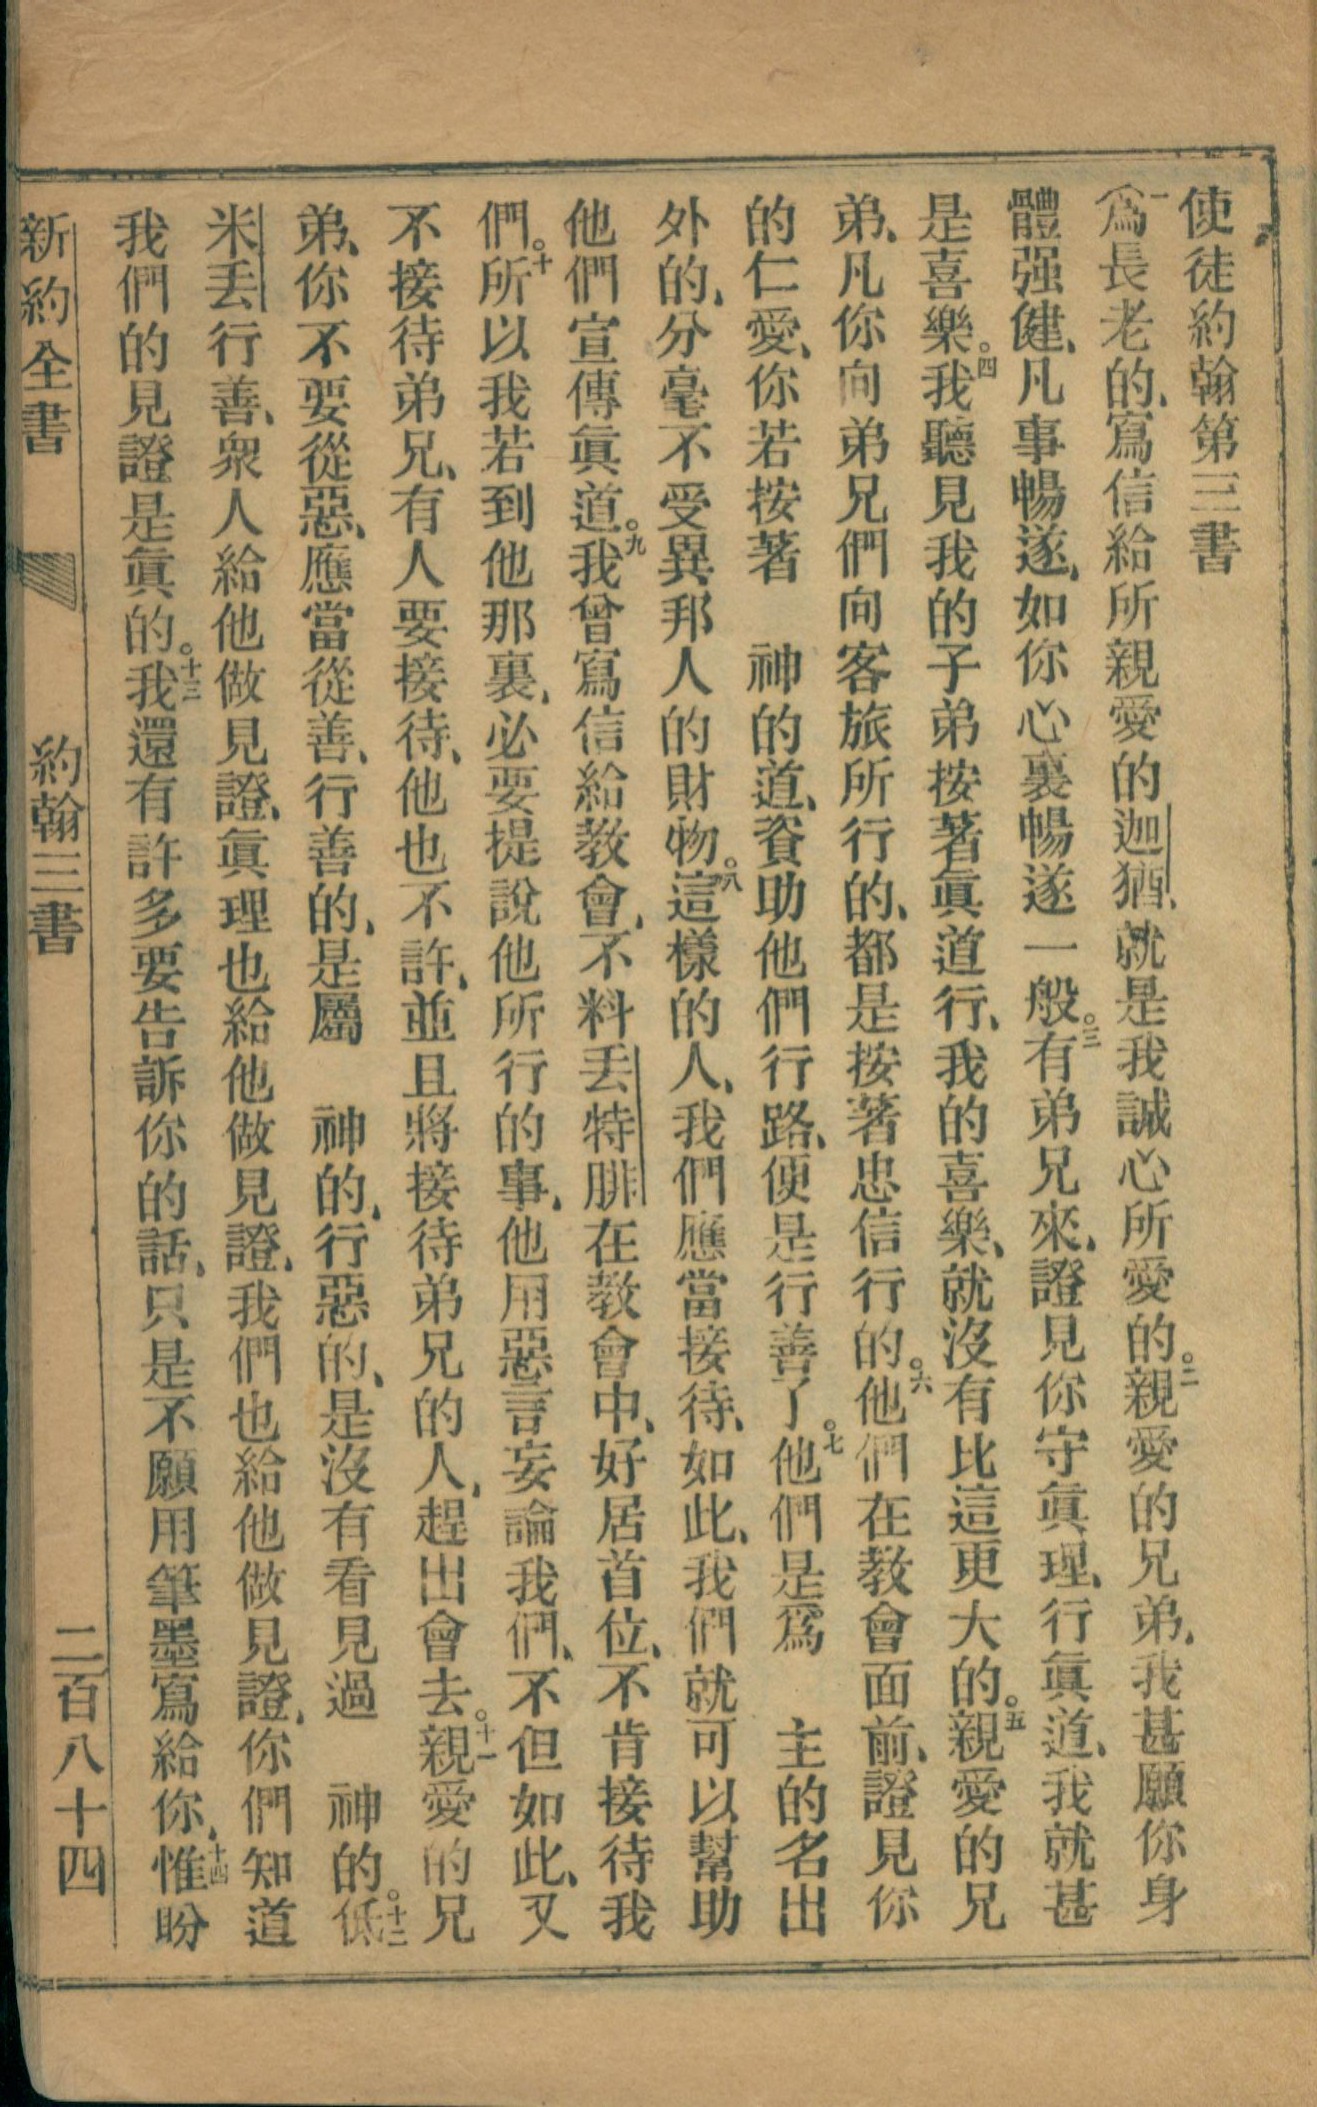 使徒約翰第三書
一爲長老的、寫信給所親愛的迦猶、就是我誠心所愛的。二親愛的兄弟、我甚願你身
體强健、凡事暢遂、如你心裏暢遂一般。三有弟兄來、證見你守眞理、行眞道、我就甚
是喜樂。四我聽見我的子弟按著眞道行、我的喜樂、就沒有比這更大的。五親愛的兄
弟、凡你向弟兄們向客旅所行的、都是按著忠信行的。六他們在教會面前、證見你
的仁愛、你若按著　神的道、資助他們行路、便是行善了。七他們是爲　主的名出
外的、分毫不受異邦人的財物。八這樣的人、我們應當接待、如此、我們就可以幫助
他們宣傳眞道。九我曾寫信給教會、不料丟特腓在教會中、好居首位、不肯接待我
們。十所以我若到他那裏、必要提說他所行的事、他用惡言妄論我們、不但如此、又
不接待弟兄、有人要接待、他也不許、並且將接待弟兄的人、趕出會去。十一親愛的兄
弟、你不要從惡、應當從善、行善的、是屬　神的、行惡的、是沒有看見過　神的。十二低
米丟行善、衆人給他做見證、眞理也給他做見證、我們也給他做見證、你們知道
我們的見證是眞的。十三我還有許多要告訴你的話、只是不願用筆墨寫給你、十四惟盼
新約全書　約翰三書　二百八十四